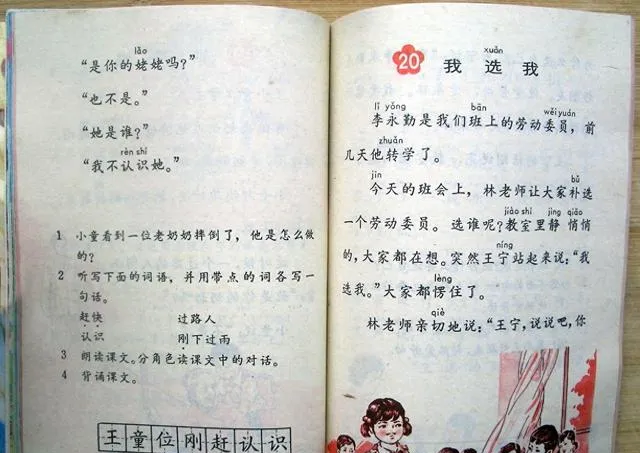 lǎo
“是你的姥姥吗？”
“也不是。”
“她是谁？”
rèn shí
“我不认识她。”
1 小童看到一位老奶奶摔倒了，他是怎么做
的？
2 听写下面的词语，并用带点的词各写一
句话。
赶快 过路人
认识 刚下过雨
3 朗读课文。分角色读课文中的对话。
4 背诵课文。
王童位刚赶认识
xuǎn
20 我选我
lǐ yǒng bān wěi yuán
李永勤是我们班上的劳动委员，前
zhuǎn
几天他转学了。
jīn bǔ
今天的班会上，林老师让大家补选
jiào shì jìng qiāo
一个劳动委员。选谁呢？教室里静悄悄
níng
的，大家都在想。突然王宁站起来说：“我
lèng
选我。”大家都愣住了。
qiè
林老师亲切地说：“王宁，说说吧，你